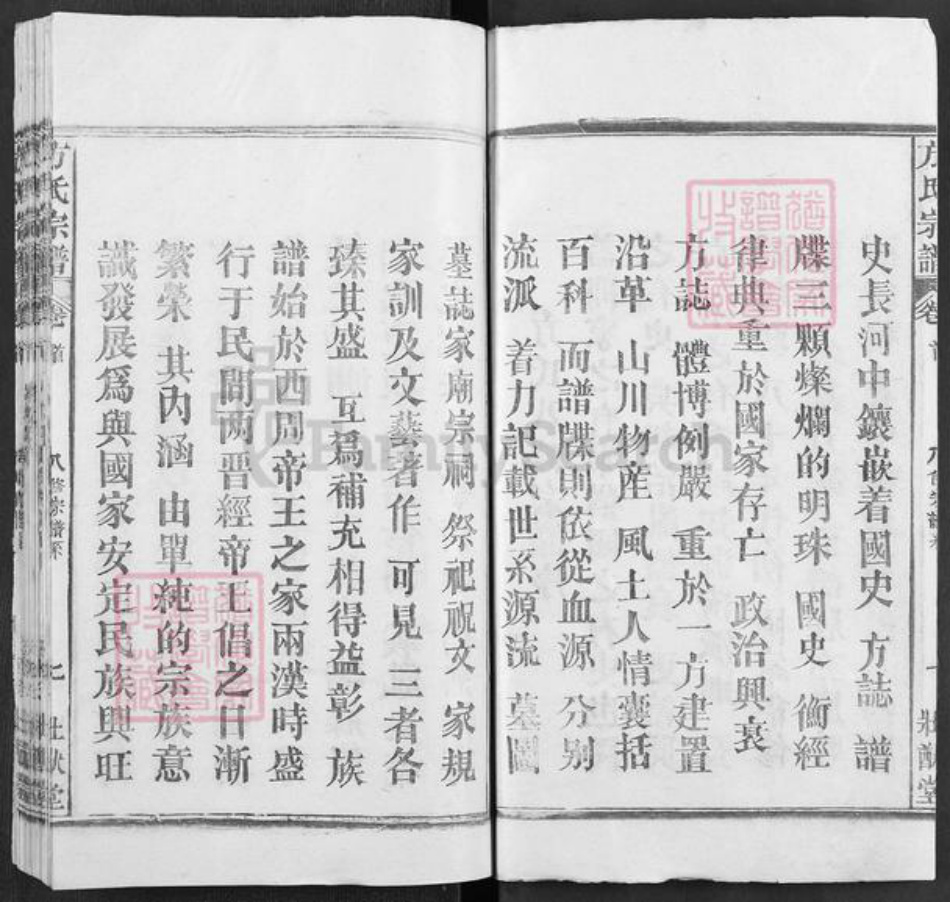 方氏宗譜
卷
首
八修宗譜系
七
壯猷堂
史長河中鑲嵌着國史 方誌 譜
牒三顆燦爛的明珠 國史 衡經
律典重於國家存亡 政治興衰
方誌 體博例嚴 重於一方建置
沿革 山川物産 風土人情囊括
百科 而譜牒則依從血源 分别
流派 着力記載世系源流 墓圖
墓誌家廟宗祠 祭祀祝文 家規
家訓及文藝著作 可見 三者各
臻其盛 互爲補充相得益彰 族
譜始於西周帝王之家兩漢時盛
行于民間两晋經帝王倡之日漸
繁榮 其内涵 由單純的宗族意
識發展爲與國家安定民族興旺
方氏宗譜
卷
首
八修宗譜系
七
壯猷堂
FamilySearch